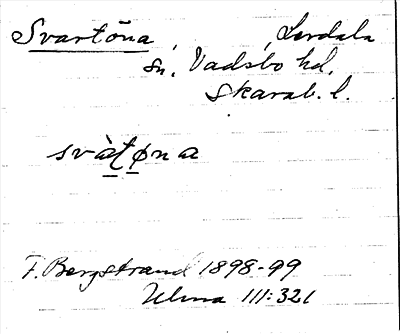 Svartöna, Lerdala
sn, Vadsbo hd,
Skarab. l.
svàtøna
F. Bergstrand 1898-99
Ulma 111:321